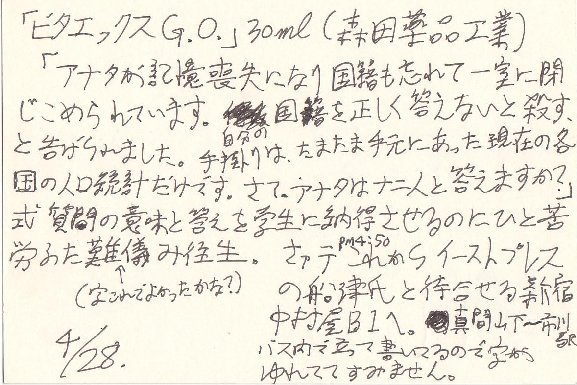 「ビタエックスG.O.」30ml(森田薬品工業)
「アナタが記憶喪失になり国籍も忘れて一室に閉
じこめられています。国籍を正しく答えないと殺す、
と告げられました。自分の手掛りは、たまたま手元にあった現在の各
国の人口統計だけです。さて、アナタはナニ人と答えますか?」
式質問の意味と答えを学生に納得させるのにひと苦
労みた難儀み往生。さァテPM4:50これからイーストプレス
(字これでよかったかな?)
の船津氏と待合せる新宿
中村屋B1へ。真間山下〜市川駅
バス内で立って書いてるので字が
ゆれててすみません。
4/28.